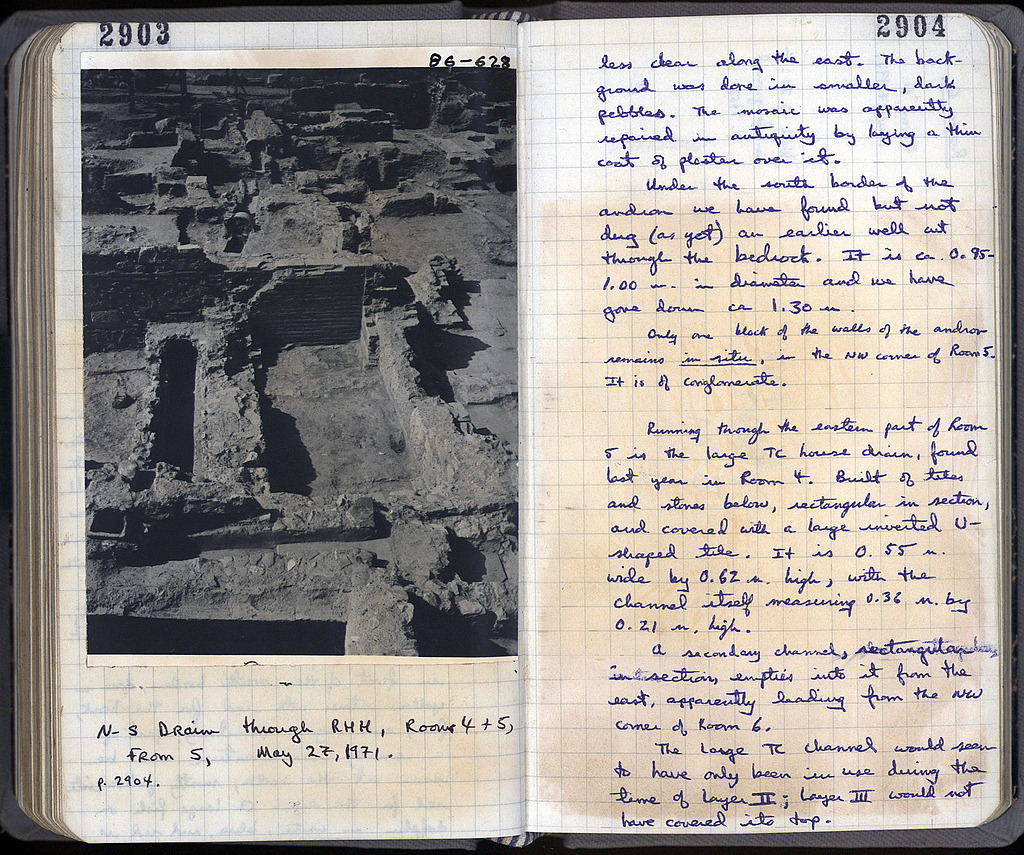 2903
86-628
N-S Drain through RHH, Rooms 4 + 5,
From S, May 27, 1971.
p. 2904.
2904
less clear along the east. The back-
ground was done in smaller, dark
pebbles. The mosaic was apparently
repaired in antiquity by laying a thin
coat of plaster over it.
Under the south border of the
andron we have found but not
dug (as yet) an earlier well cut
through the bedrock. It is ca. 0.95-
1.00 m. in diameter and we have
gone down ca 1.30 m.
Only one block of the walls of the andron
remains in situ, in the NW corner of Room 5.
It is of conglomerate.
Running through the eastern part of Room
5 is the large TC house drain, found
last year in Room 4. Built of tiles
and stones below, rectangular in section,
and covered with a large inverted U-
shaped tile. It is 0.55 m.
wide by 0.62 m. high, with the
channel itself measuring 0.36 m. by
0.21 m. high.
A secondary channel, rectangular
in section, empties into it from the
east, apparently leading from the NW
corner of Room 6.
The large TC channel would seem
to have only been in use during the
time of Layer II; Layer III would not
have covered its top.